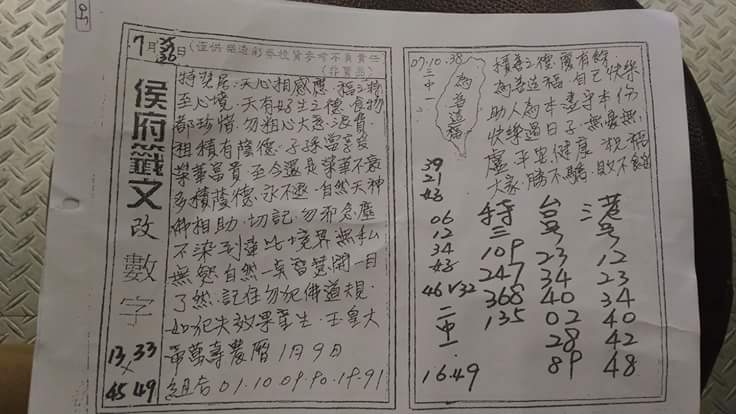 7月30日
(僅供樂透彩券投資參考不負責任
侯府籤文改數字
13 33
×
45 49
特獎尾.天心相感應.福立物
至心境.天有好生之德.食物
都珍惜.勿粗心大意浪費.
祖積有陰德.子孫當享受
榮華富貴.至今還是榮華不衰
多積陰德.永不匱.自然天神
神相助.切記.勿邪念塵
不染到達此境界無私
無慾自然一真智慧開一目
了然.記住勿犯佛道規.
如犯失效果產生.玉皇大
帝萬壽農曆1月9日
組合01.10 09.90.19.91
07.10.38
三中一
為善造福
積善之德慶有餘
為善造福.自己快樂
助人為本.遵守本份
快樂過日子.無憂無
慮.平安健康.祝福
大家.勝不驕.敗不餒
39
21
06
12
34
46 V32
二中一
16.49
特三
109
247
368
135
台號
23
34
40
02
28
89
港號
12
23
34
40
42
48